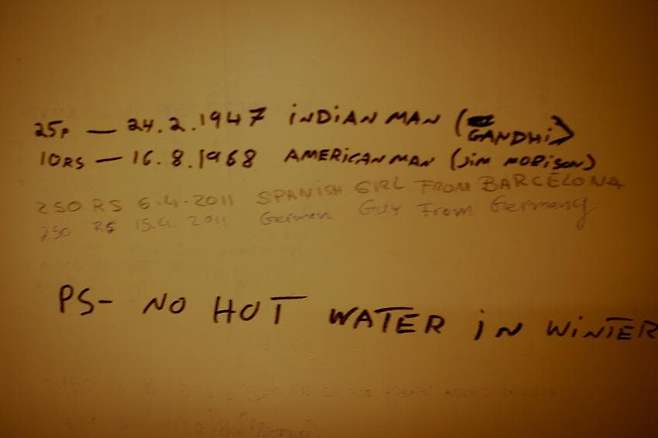 25P — 24.2.1947 iNDiAN MAN (GANDHi)
10RS — 16.8.1968 AMERICAN MAN (JiM MORiSON)
250 RS 5.4.2011 SPANISH GIRL FROM BARCELONA
250 RS 15.4.2011 German GUY From Germany
PS- NO HOT WATER iN WiNTER